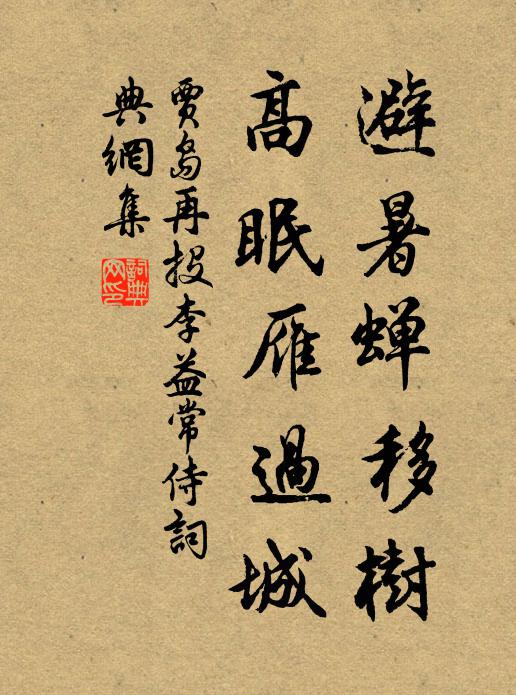 避暑蝉移樹
高眠雁過城
賈島再投李益常侍詞
典網集
詞典
网印